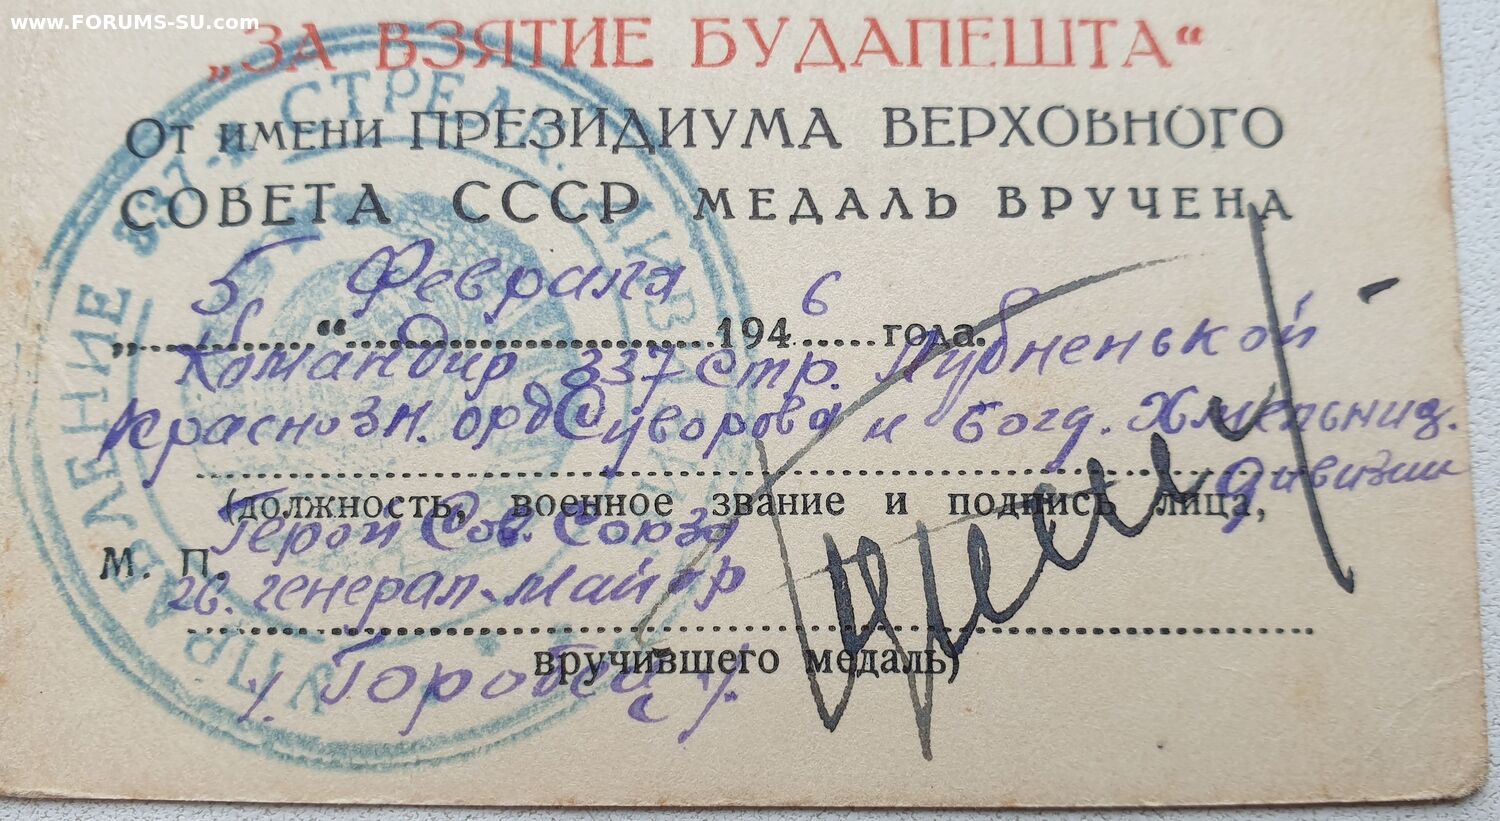 www.FORUMS-SU.com
„ЗА ВЗЯТИЕ БУДАПЕШТА“
От имени ПРЕЗИДИУМА ВЕРХОВНОГО
СОВЕТА СССР МЕДАЛЬ ВРУЧЕНА
„5“ Февраля 1946 года.
Командир 337 стр. Лубненькой
Краснозн. орд Суворова и Богд. Хмельниц.
дивизии
(должность, военное звание и подпись лица,
Герой Сов. Союза
М. П.
гв. генерал-майор
вручившего медаль)
/ Горобец /
УПРАВЛЕНИЕ 337-й СТРЕЛК. ДИВИЗИИ